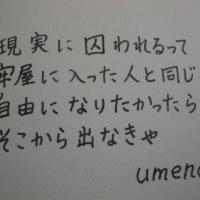 現実に囚われるって
牢屋に入った人と同じ
自由になりたかったら
そこから出なきゃ
umeno